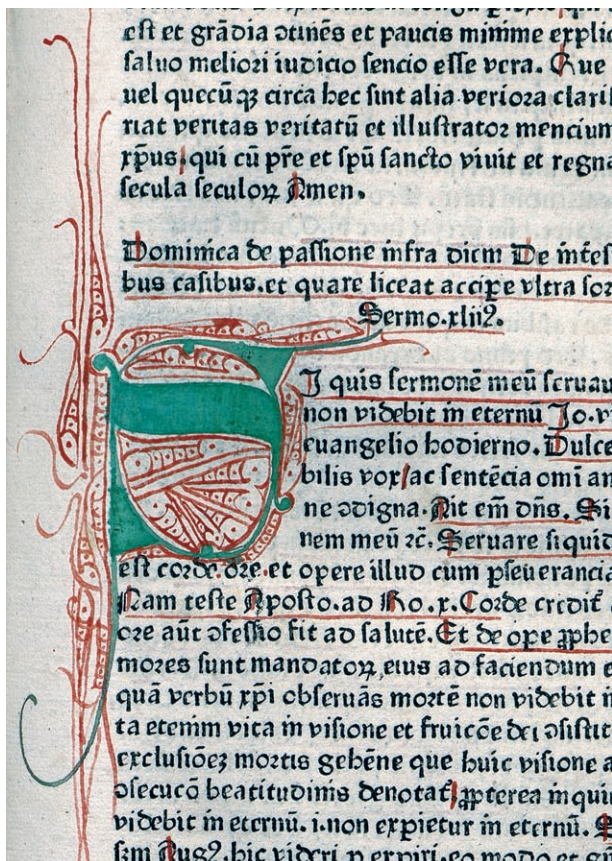 est et grādia ɔtinēs et paucis minime explic
saluo meliori iudicio sencio esse vera. Que
uel quecūqꝫ circa hec sint alia veriora clari
riat veritas veritatū et illustrator menciun
xp̄us. qui cū pr̄e et sp̄u sancto viuit et regna
secula seculoꝝ Amen.
Dominica de passione infra diem De intes
bus casibus. et quare liceat accipe vltra sor
Sermo. xliiꝰ.
I quis sermonē meū seruau
non videbit in eternū Jo. v
euangelio hodierno. Dulce
bilis vox/ac sentēcia omi am
ne ɔdigna. Ait em̄ dn̄s. Si
nem meū ⁊c̄. Seruare siquid
est corde. ore. et opere illud cum ꝑseuerancia
Nam teste Aposto. ad Ro. x. Corde credit̄
ore aūt ɔfessio fit ad salutē. Et de ope ꝓphe
mores sunt mandatoꝝ eius ad faciendum e
quā verbū xp̄i obseruās mortē non videbit
ta etenim vita in visione et fruicōe dei ɔsistit
exclusiōeꝫ mortis gehēne que huic visione a
ɔsecucō beatitudinis denotat̄/ ꝓpterea inqui
videbit in eternū. i. non expietur in eternū.
Augꝰ. hic videri ꝑ expiri. eo modo